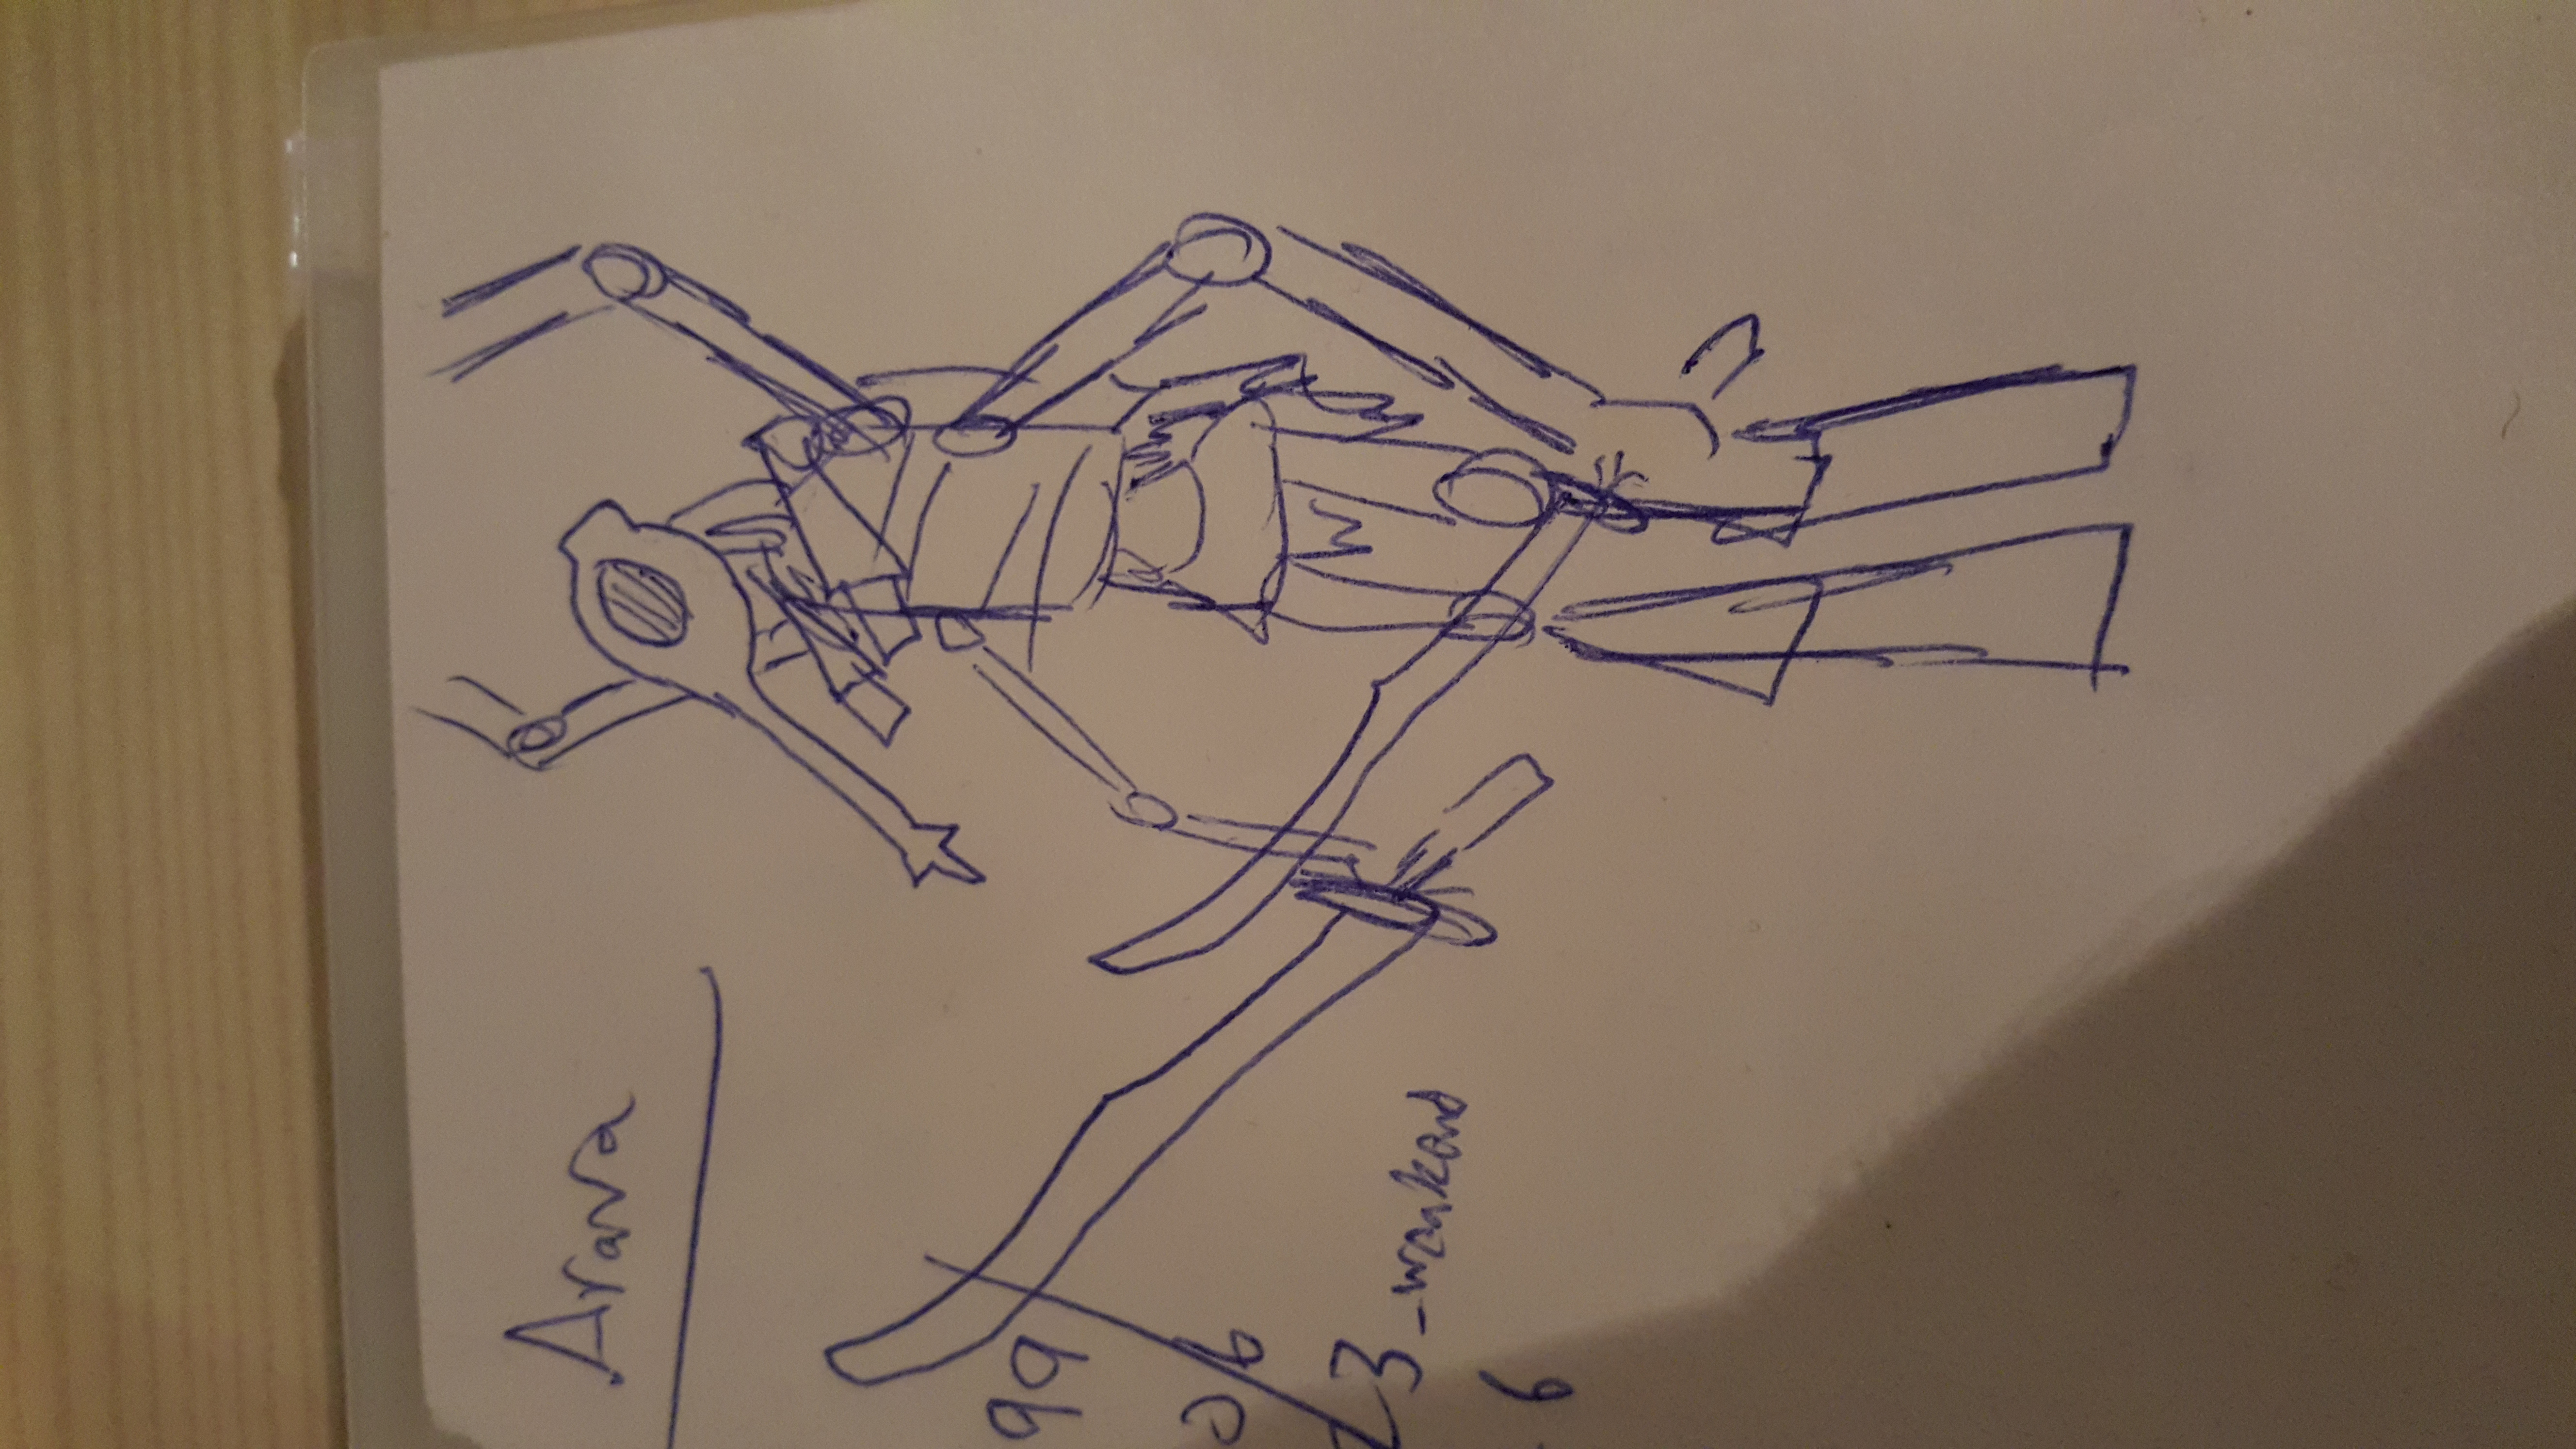 Arava
99
06
3 - weekend
6